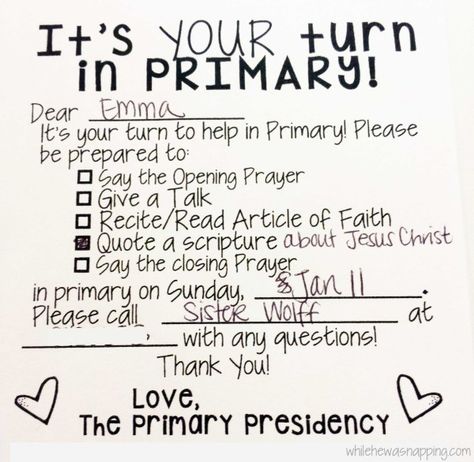 It's YOUR turn
in PRIMARY!
Dear Emma
It's your turn to help in Primary! Please
be prepared to:
Say the Opening Prayer
Give a Talk
Recite/Read Article of Faith
Quote a scripture about Jesus Christ
Say the closing Prayer
in primary on Sunday, Jan 11.
Please call Sister Wolff at
with any questions!
Thank You!
Love,
The Primary Presidency
whilehewasnapping.com